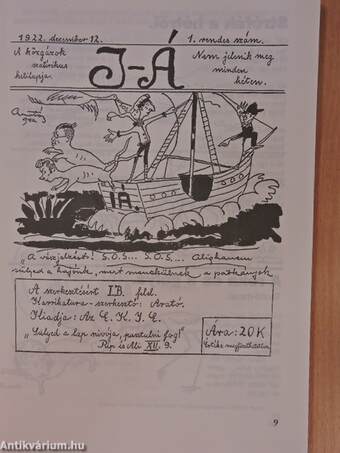 1922. december 12.
1. rendes szám.
A közgázok
szatirikus
hetilapja
I-Á
Nem jelenik meg
minden
héten.
I.Á.
"A vészjelkést! S.O.S... S.O.S... Alighanem
sülyed a hajónk, mert menekülnek a patkányok
A szerkesztésért I.B. felel.
Karrikatura-szerkesztő: Arató.
Kiadja: Az E.K.I.E.
"Sülyed a lap nivója, pusztulni fog!"
Pap és Ali XII. 9.
Ára: 20K
Értéke megfizethetetlen.
9
Antikvárium.hu